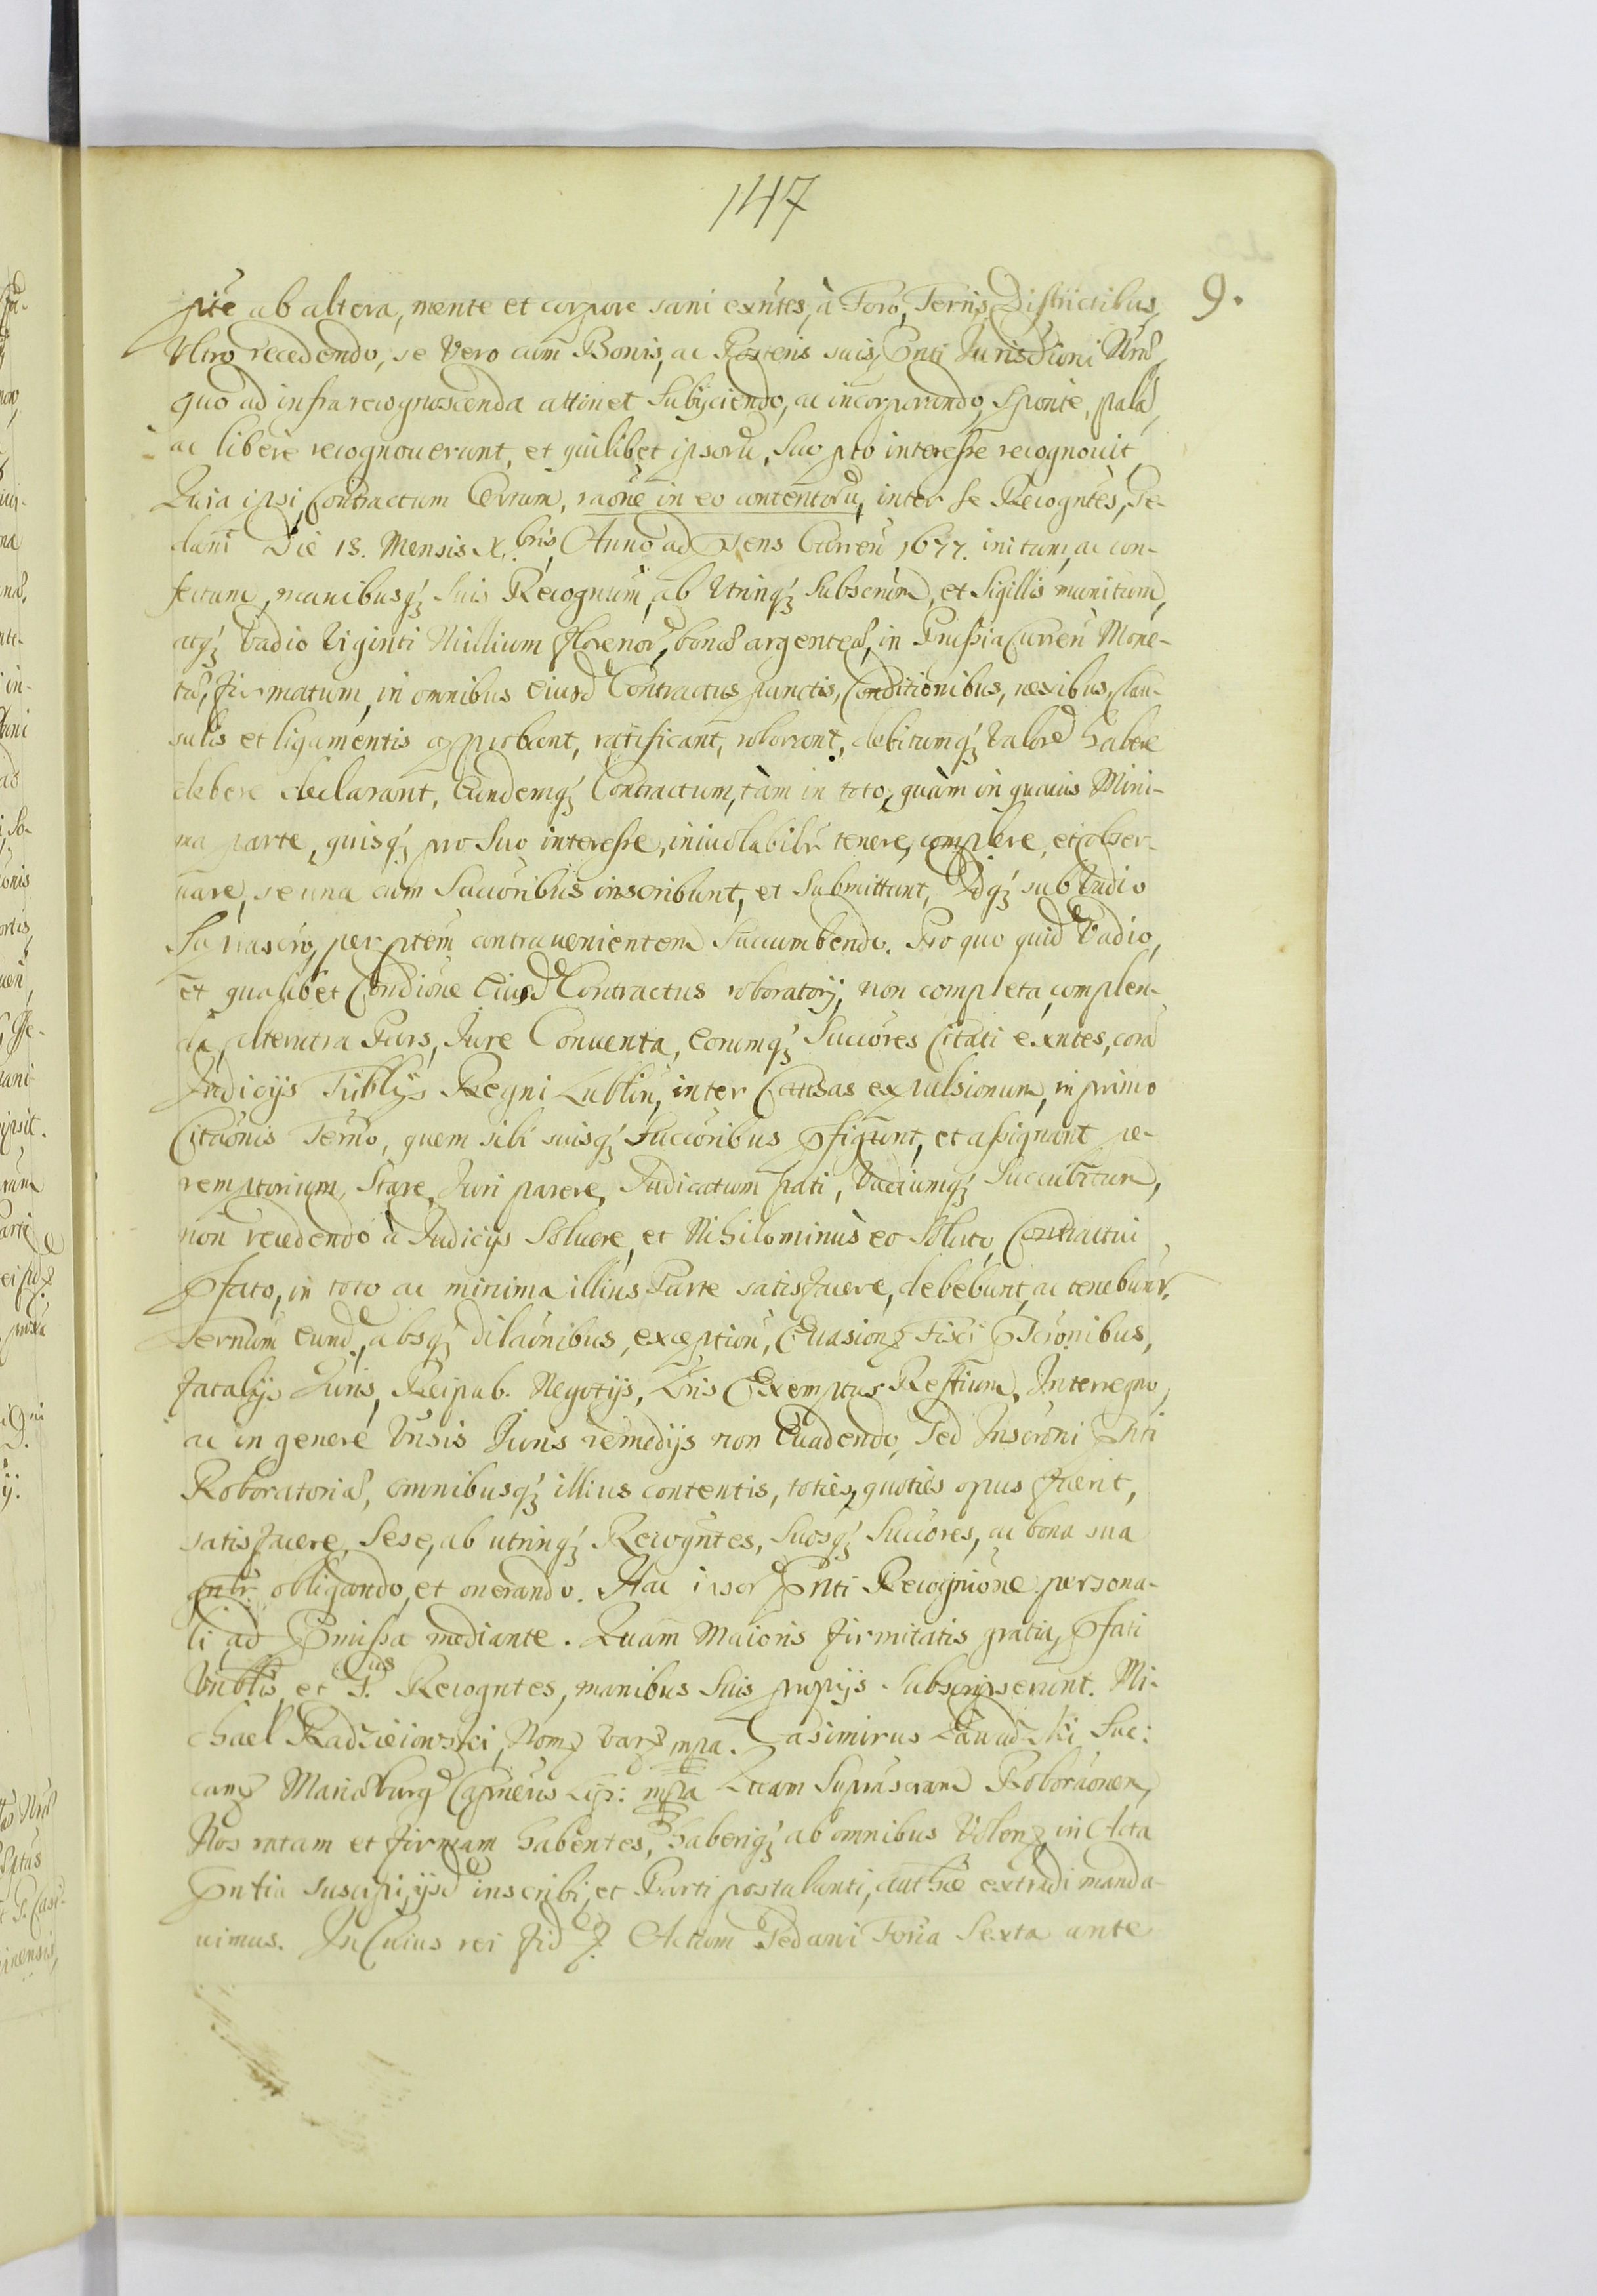 147
9.
pte ab altera, mente et corpore sani exntes, à Foro, Terris, Districtibus,
Ultro recedendo, se Vero cum Bonis, ac Posteris suis, Pnti Jurisdioni Nrae
quo ad infra recognoscenda attinet Subijciendo, ac incorporando, Sponte, pala,
ac libere recognouerunt, et quilibet ipsoru, Suo pto interesse recognouit
Quia ipsi, Contractum Certum, raone in eo contentoru, inter se Recogntes, Ge-
dani Die 18. Mensis X.bris, Anno ad Psens Curren 1677. initum, ac con-
fectum, manibusq; Suis Recognum, ab Utrinq; Subscrum, et Sigillis munitum,
atq; Vadio Viginti Millium florenor, bonae argenteae, in Prussia Curren Mone-
tae, firmatum, in omnibus Eiusd Contractus punctis, Conditionibus, nexibus, clau-
sulis et ligamentis approbant, ratificant, roborant, debitumq; Valore habere
debere declarant, Eundemq; Contractum, tàm in toto, quàm in quauis Mini-
ma parte, quisq; pro Suo interesse, inviolabilr tenere, complere, et obser-
uare, se una cum Succoribus inscribunt, et Submittunt, Idq; sub Vadio
Suprascro, per ptem contrauenientem Succumbendo. Pro quo quid Vadio,
et qualibet Condione Eiusd Contractus roboratorij, non completa, complen-
da, alterutra Pars, Jure Conuenta, Eorumq; Succores Citati exntes, cora
Judicijs Tribljs Regni Lublin, inter Causas expulsionum, in primo
Citaonis Termo, quem sibi suisq; Succoribus Pfigunt, et assignant pe-
remptorium, Stare, Juri parere, Judicatum pati, Vadiumq; Succubitum,
non recedendo à Judicijs Soluere, et Nihilominùs eo Soluto, Contractui
Pfato, in toto ac minima illius Parte satisfacere, debebunt, ac tenebunr.
Termum Eund, absq; dilaonibus, exception, Euasion Fixi Pscronibus,
fatalijs Juris, Reipub. Negotijs, Lris Exemptus Restium, Interregno,
ac in genere Vnsis Juris remedijs non Euadendo, Sed Inscroni Pnti
Roboratoriae, omnibusq; illius contentis, toties, quoties opus fuerit,
satisfacere, Sese, ab utrinq; Recogntes, Suosq; Succores, ac bona sua
gnlr. obligando, et onerando. Hac ipsor Pnti Recognione persona-
li, ad Pmissa mediante. Quam Maioris firmitatis gratia, Pfati
Vrblis, et P.dus Recogntes, manibus Suis proprijs Subscripserunt. Mi-
chael Radzieiowski, Nom Var mpa. Casimirus Zawadzki Suc:
cam Mariaeburg Capneus Lip: mpa Quam Suprascram Roboraonem,
Nos ratam et firmam habentes, haberiq; ab omnibus Volen, in Acta
Pntia suscipi, ijsd inscribi, et Parti postulanti, authce extradi manda-
uimus. In Cuius rei fid Actum Gedani Feria Sexta ante